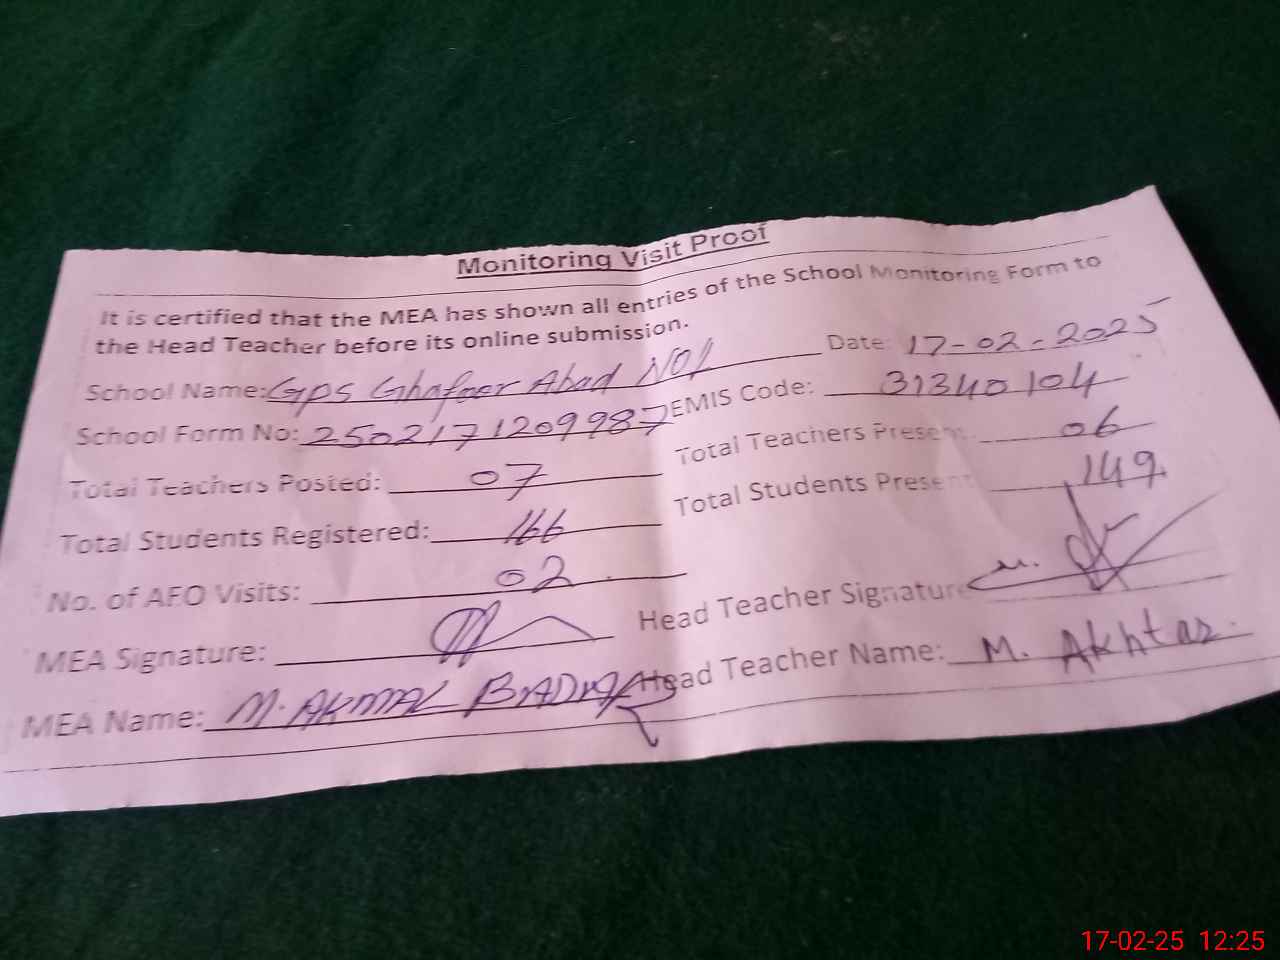 Monitoring Visit Proof
It is certified that the MEA has shown all entries of the School Monitoring Form to
the Head Teacher before its online submission.
School Name: GPS Ghafoor Abad NO1 Date: 17-02-2025
School Form No: 2502171209987 EMIS Code: 31340104
Total Teachers Posted: 07 Total Teachers Present: 06
Total Students Registered: 166 Total Students Present: 149
No. of AEO Visits: 02
MEA Signature: Head Teacher Signature
MEA Name: M. AKMAL Head Teacher Name: M. Akhtar
17-02-25 12:25